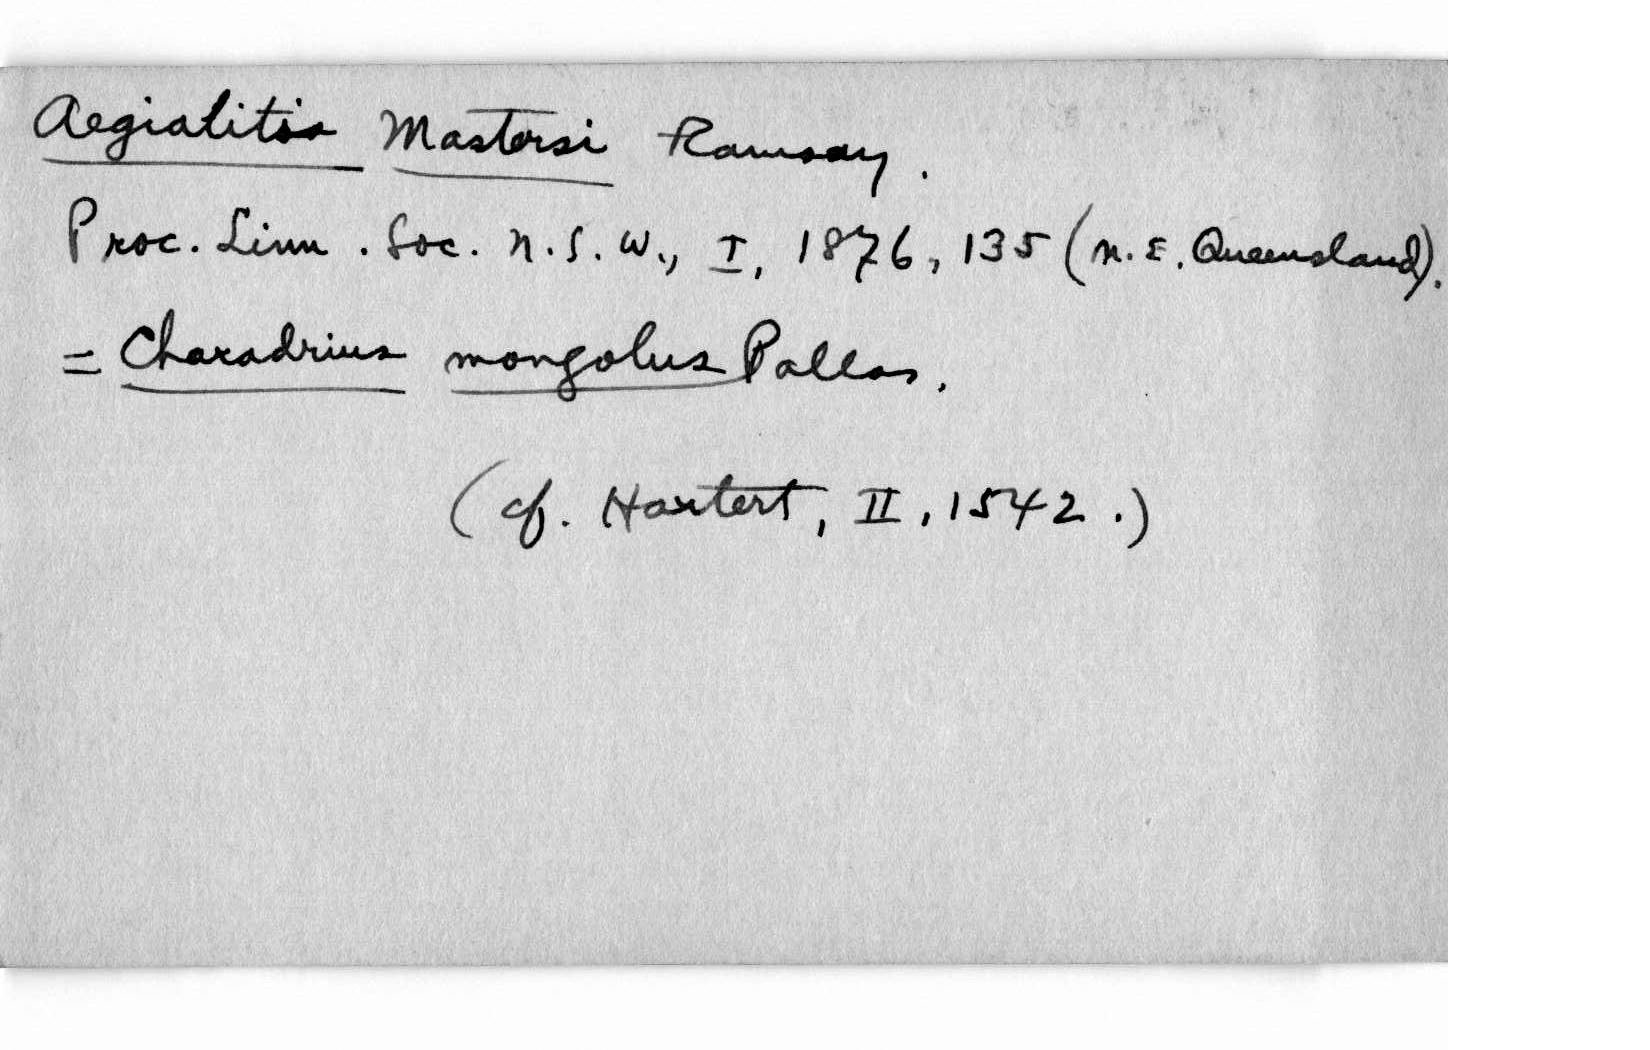 Aegialitis Mastersi Ramsay.
Proc. Linn. Soc. N.S.W., I, 1876, 135 (N.E. Queensland).
= Charadrius mongolus Pallas.
(cf. Hartert, II, 1542.)